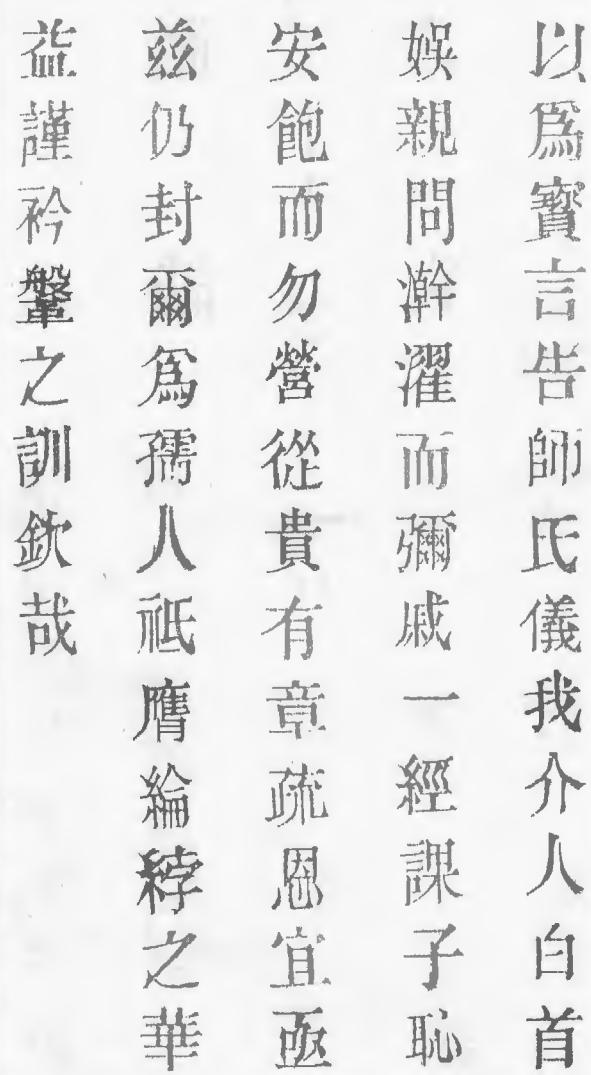 以爲寶言告師氏儀我介人白首
娛親問澣濯而彌戚一經課子恥
安飽而勿營從貴有章疏恩宜亟
兹仍封爾爲孺人祗膺綸綍之華
益謹衿鞶之訓欽哉